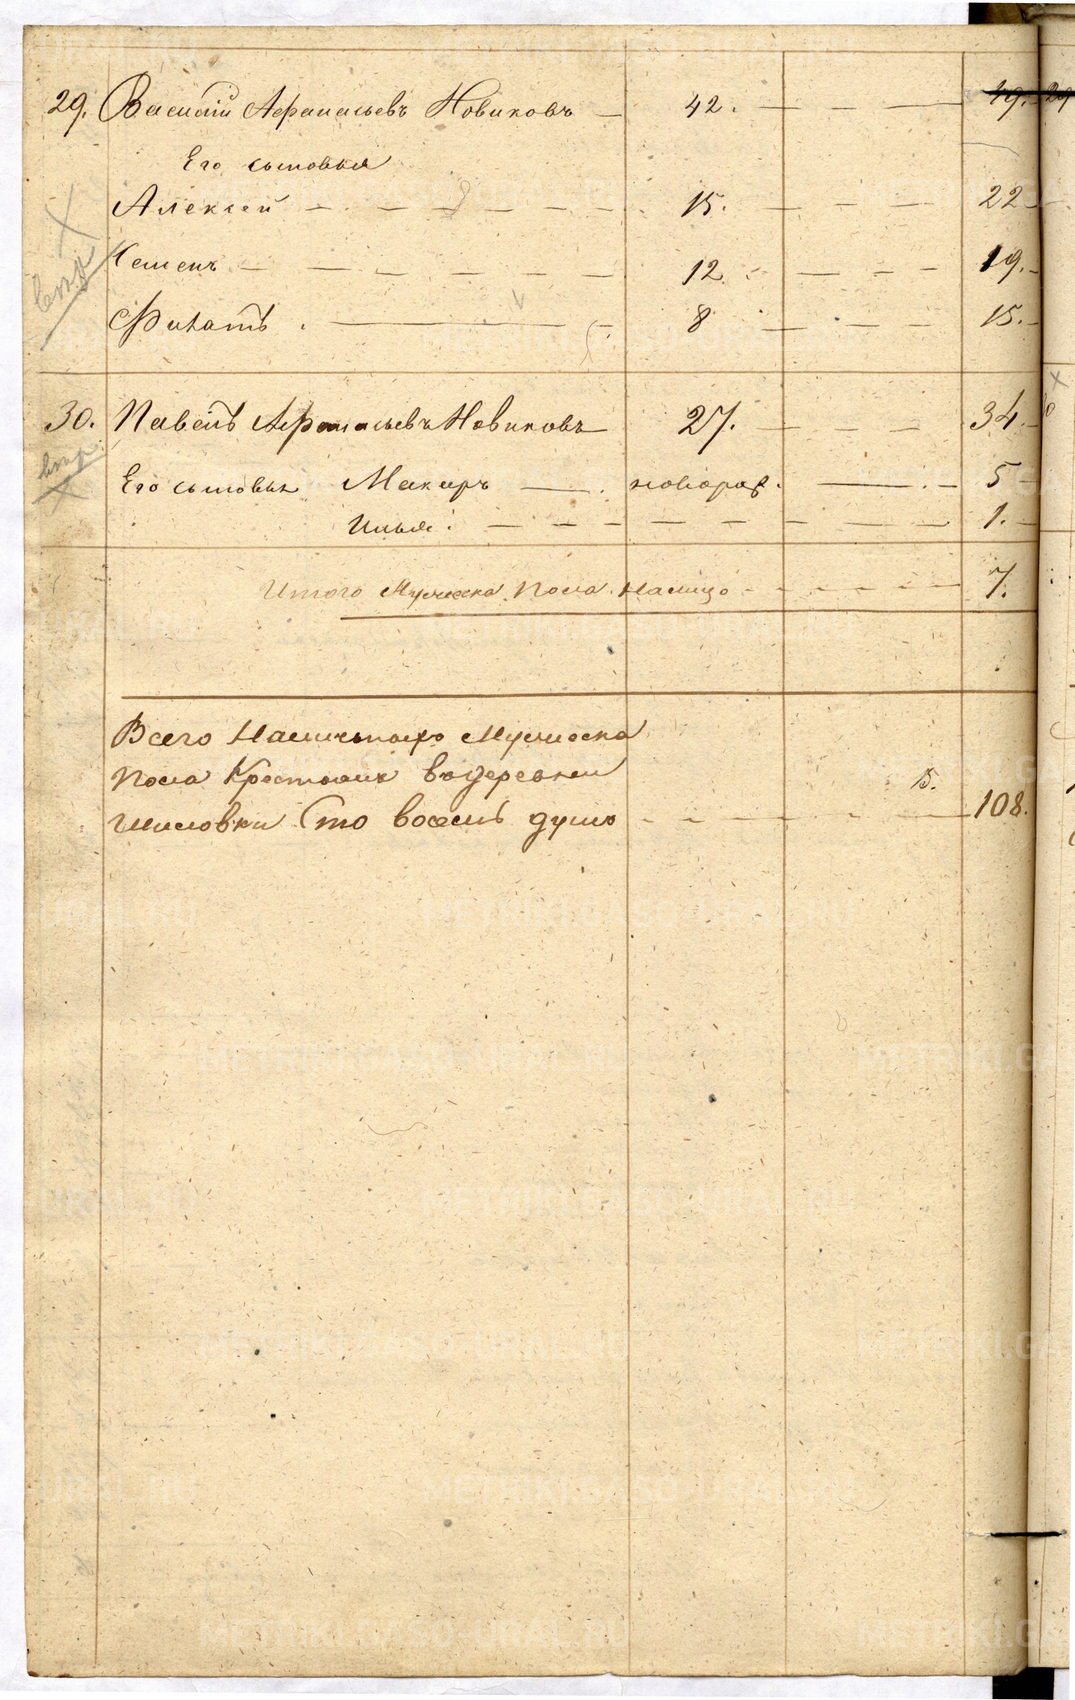 29. Василий Афанасьевъ Новиковъ — 42. — — — 49. 29
Его сыновья
Алексей — — — — — 15. — — — 22
Семенъ — — — — — 12 — — — 19.
Филатъ . — — 8 — — — 15.
30. Павелъ Афанасьевъ Новиковъ 27. — — — 34.
Его сыновья Макаръ — новорож. — — 5
Илья. — — — — — — — — 1.
Итого Мужеска Пола Налицо — — — — 7.
Всего Наличнаго Мужеска
Пола Крестьянъ въ деревни
Шиловки Сто восемь душъ — — — — 108.
15.
METRIKI.GASO-URAL.RU